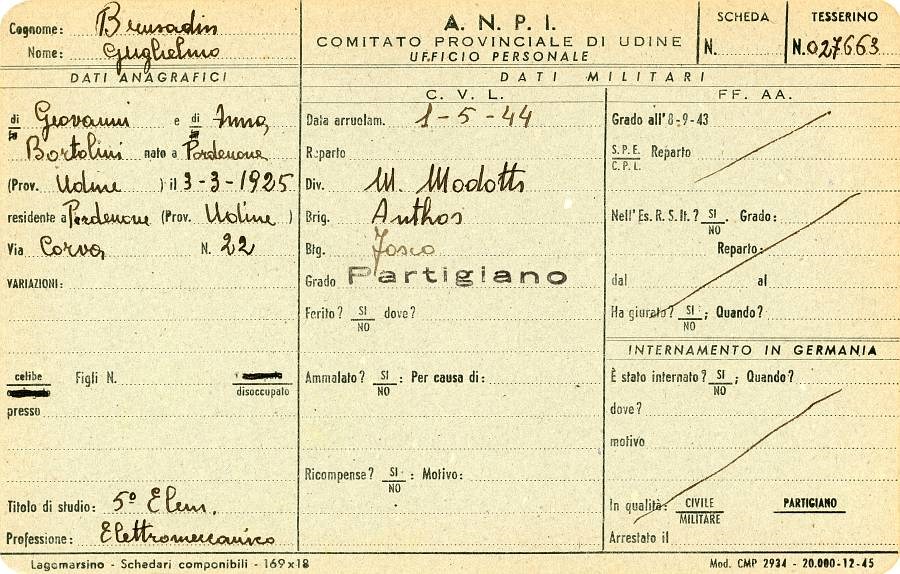 Cognome: Brusadin
Nome: Guglielmo
A. N. P. I.
COMITATO PROVINCIALE DI UDINE
UFFICIO PERSONALE
SCHEDA
N.
TESSERINO
N. 027663
DATI ANAGRAFICI
di Giovanni e di Anna
Bortolini nato a Pordenone
(Prov. Udine ) il 3-3-1925
residente a Pordenone (Prov. Udine )
Via Corva N. 22
VARIAZIONI:
celibe Figli N.
disoccupato
presso
Titolo di studio: 5º Elem.
Professione: Elettromeccanico
DATI MILITARI
C. V. L.
Data arruolam. 1-5-44
Reparto
Div. M. Modotti
Brig. Anthos
Btg. Tosco
Grado Partigiano
Ferito? SI NO dove?
Ammalato? SI NO : Per causa di:
Ricompense? SI NO : Motivo:
FF. AA.
Grado all'8-9-43
S.P.E. C.P.L. Reparto
Nell'Es. R. S. It.? SI NO . Grado:
Reparto:
dal al
Ha giurato? SI NO ; Quando?
INTERNAMENTO IN GERMANIA
È stato internato? SI NO ; Quando?
dove?
motivo
In qualità: CIVILE MILITARE PARTIGIANO
Arrestato il
Lagomarsino - Schedari componibili - 169x18
Mod. CMP 2934 - 20.000-12-45